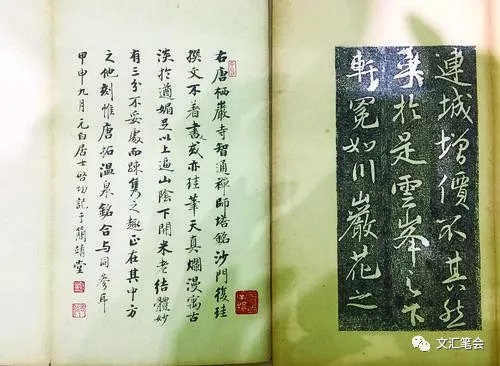 連城增價不其然
於是雲峯之下
軒冕如川巖花之
右唐栖巖寺智通禪師塔銘沙門復珪
撰文不著書或亦珪筆天真爛漫寓古
淡於遒媚足以上追山陰下開米老結體妙
有三分不妥處而疎雋之趣正在其中方
之他刻惟唐拓溫泉銘合与同參耳
甲申九月元白居士啓功記于簡靖堂
文汇笔会